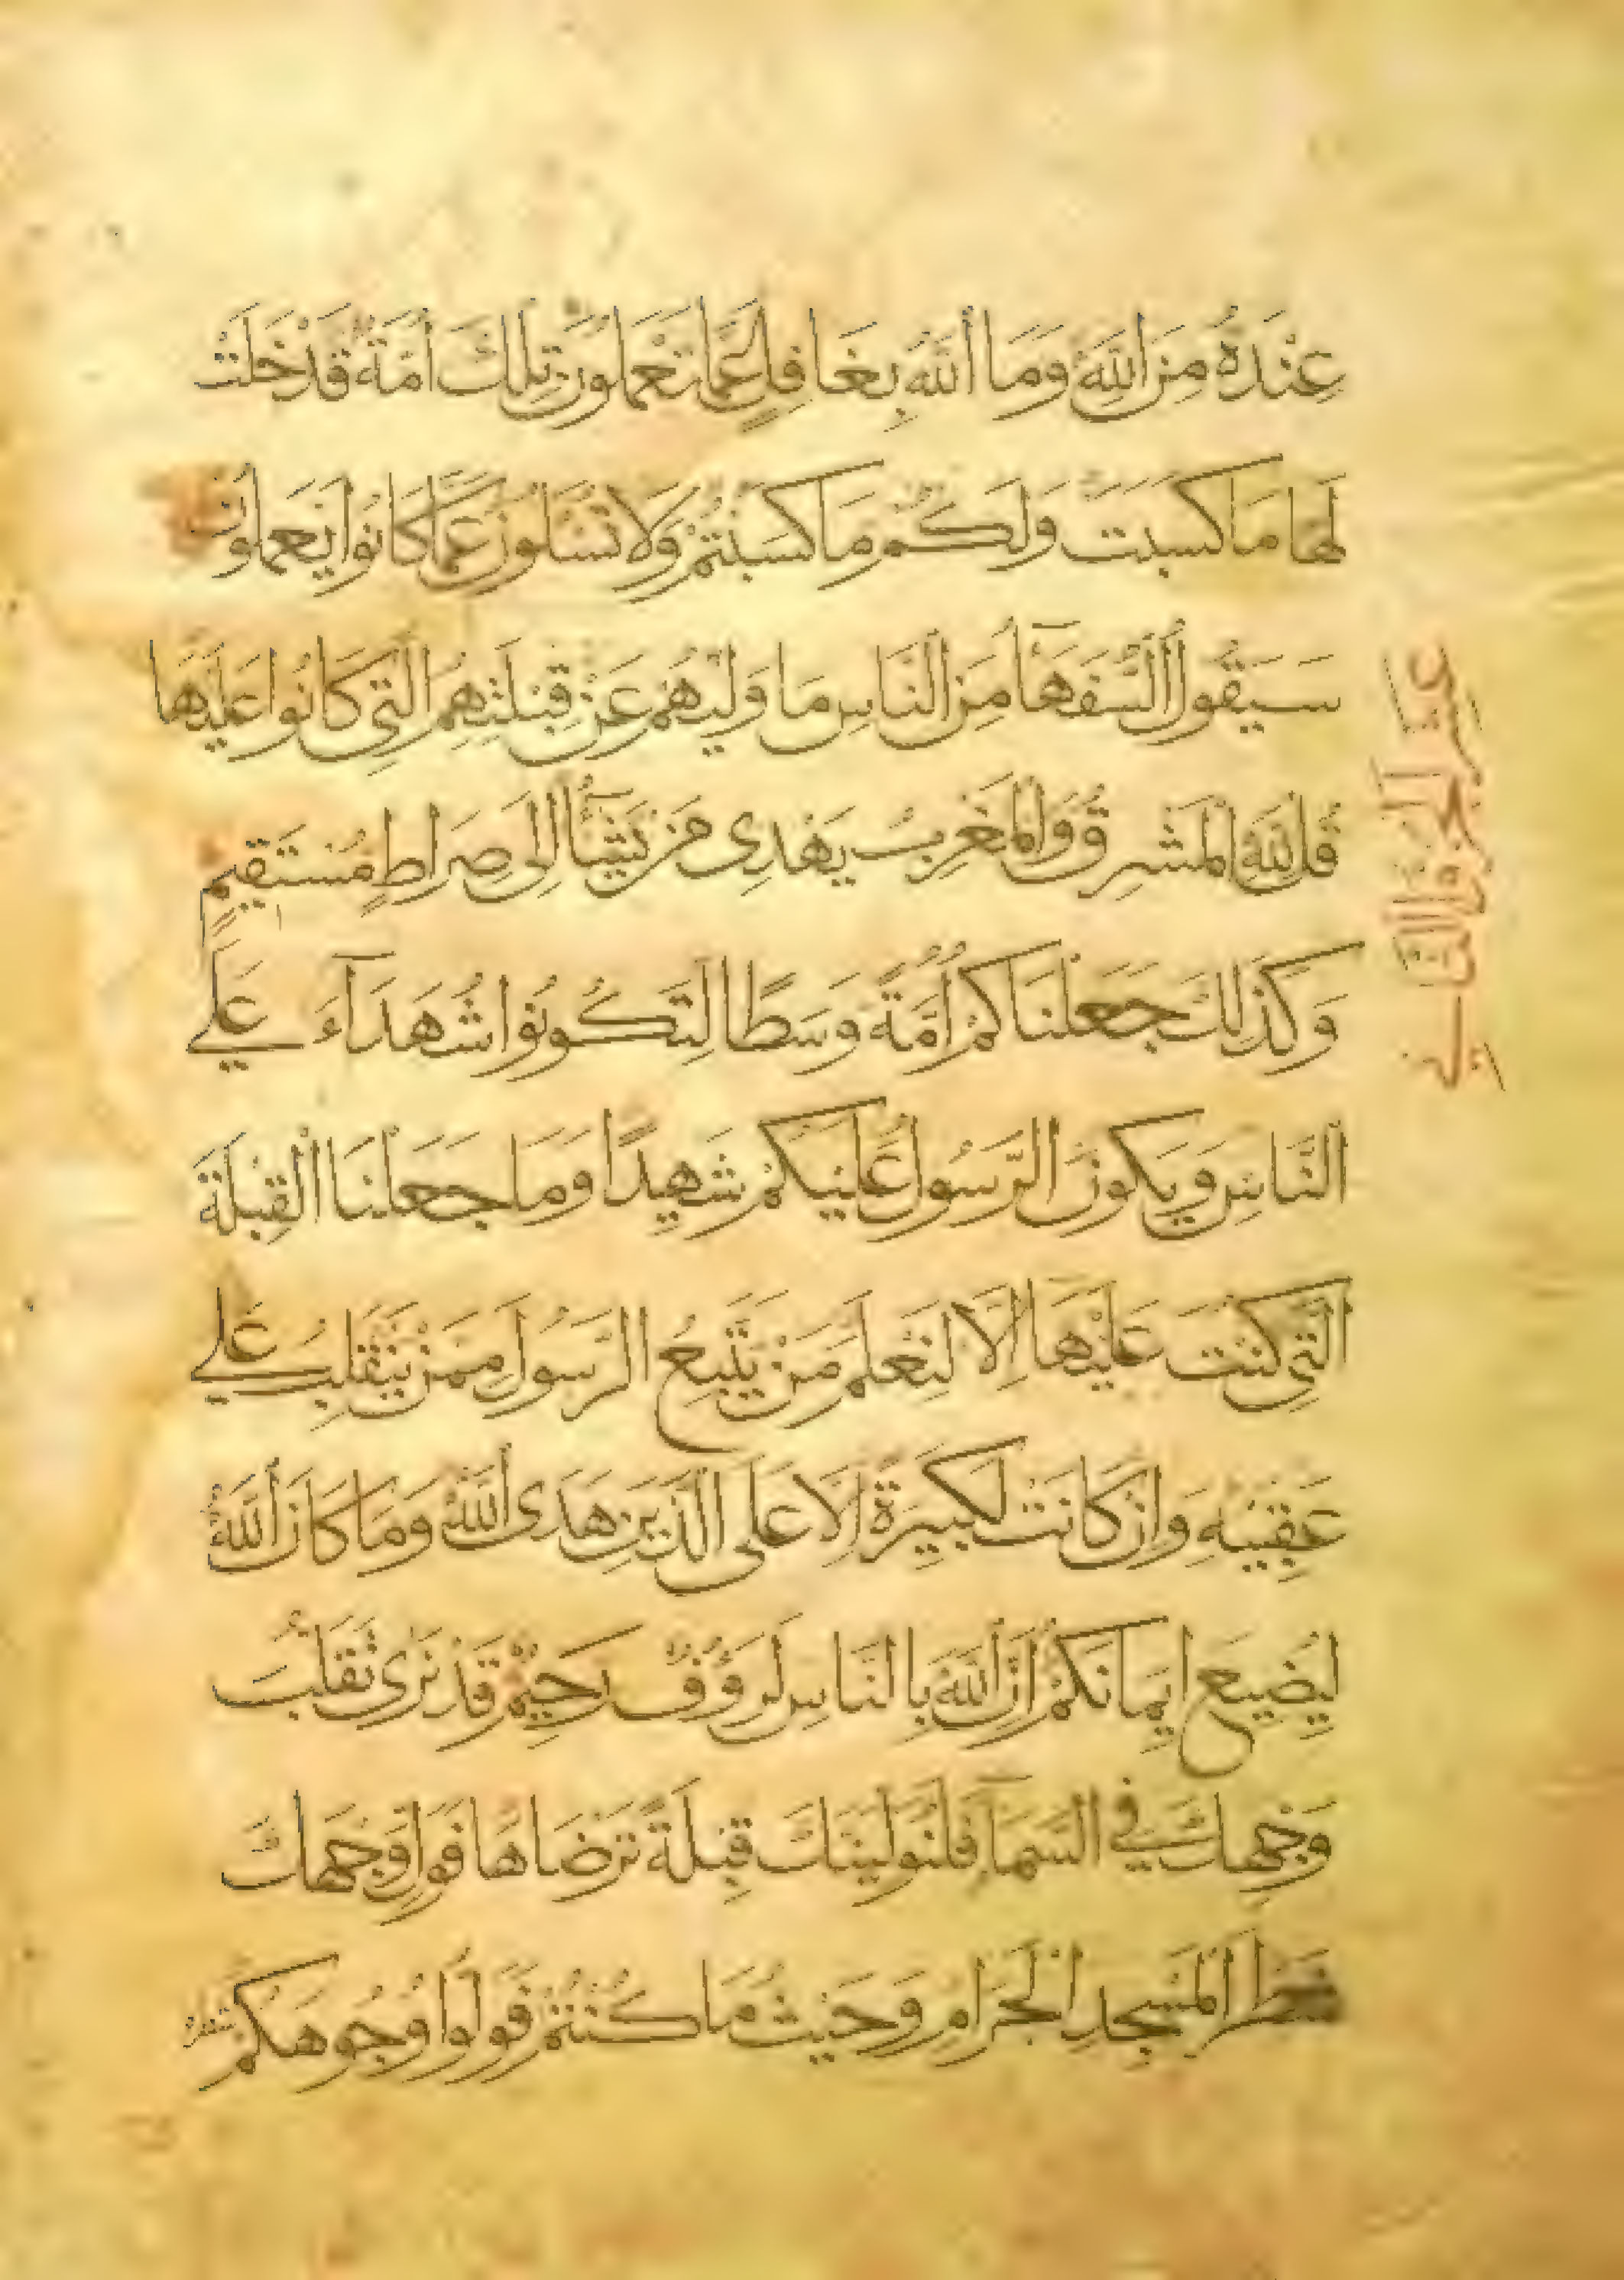 عِنْدَهُ مِنَ اللَّهِ وَمَا اللَّهُ بِغَافِلٍ عَمَّا تَعْمَلُونَ تِلْكَ أُمَّةٌ قَدْ خَلَتْ
لَهَا مَا كَسَبَتْ وَلَكُمْ مَا كَسَبْتُمْ وَلَا تُسْئَلُونَ عَمَّا كَانُوا يَعْمَلُونَ
سَيَقُولُ السُّفَهَآءُ مِنَ النَّاسِ مَا وَلَّيهُمْ عَنْ قِبْلَتِهِمُ الَّتِي كَانُوا عَلَيْهَا
قُلْ لِلَّهِ الْمَشْرِقُ وَالْمَغْرِبُ يَهْدِى مَنْ يَشَآءُ إِلَى صِرَاطٍ مُسْتَقِيمٍ
وَكَذَلِكَ جَعَلْنَاكُمْ أُمَّةً وَسَطًا لِتَكُونُوا شُهَدَآءَ عَلَى
النَّاسِ وَيَكُونَ الرَّسُولُ عَلَيْكُمْ شَهِيدًا وَمَا جَعَلْنَا الْقِبْلَةَ
الَّتِي كُنْتَ عَلَيْهَا إِلَّا لِنَعْلَمَ مَنْ يَتَّبِعُ الرَّسُولَ مِمَّنْ يَنْقَلِبُ عَلَى
عَقِبَيْهِ وَإِنْ كَانَتْ لَكَبِيرَةً إِلَّا عَلَى الَّذِينَ هَدَى اللَّهُ وَمَا كَانَ اللَّهُ
لِيُضِيعَ إِيمَانَكُمْ إِنَّ اللَّهَ بِالنَّاسِ لَرَؤُفٌ رَحِيمٌ قَدْ نَرَى تَقَلُّبَ
وَجْهِكَ فِي السَّمَآءِ فَلَنُوَلِّيَنَّكَ قِبْلَةً تَرْضَاهَا فَوَلِّ وَجْهَكَ
شَطْرَ الْمَسْجِدِ الْحَرَامِ وَحَيْثُ مَا كُنْتُمْ فَوَلُّوا وُجُوهَكُمْ شطره